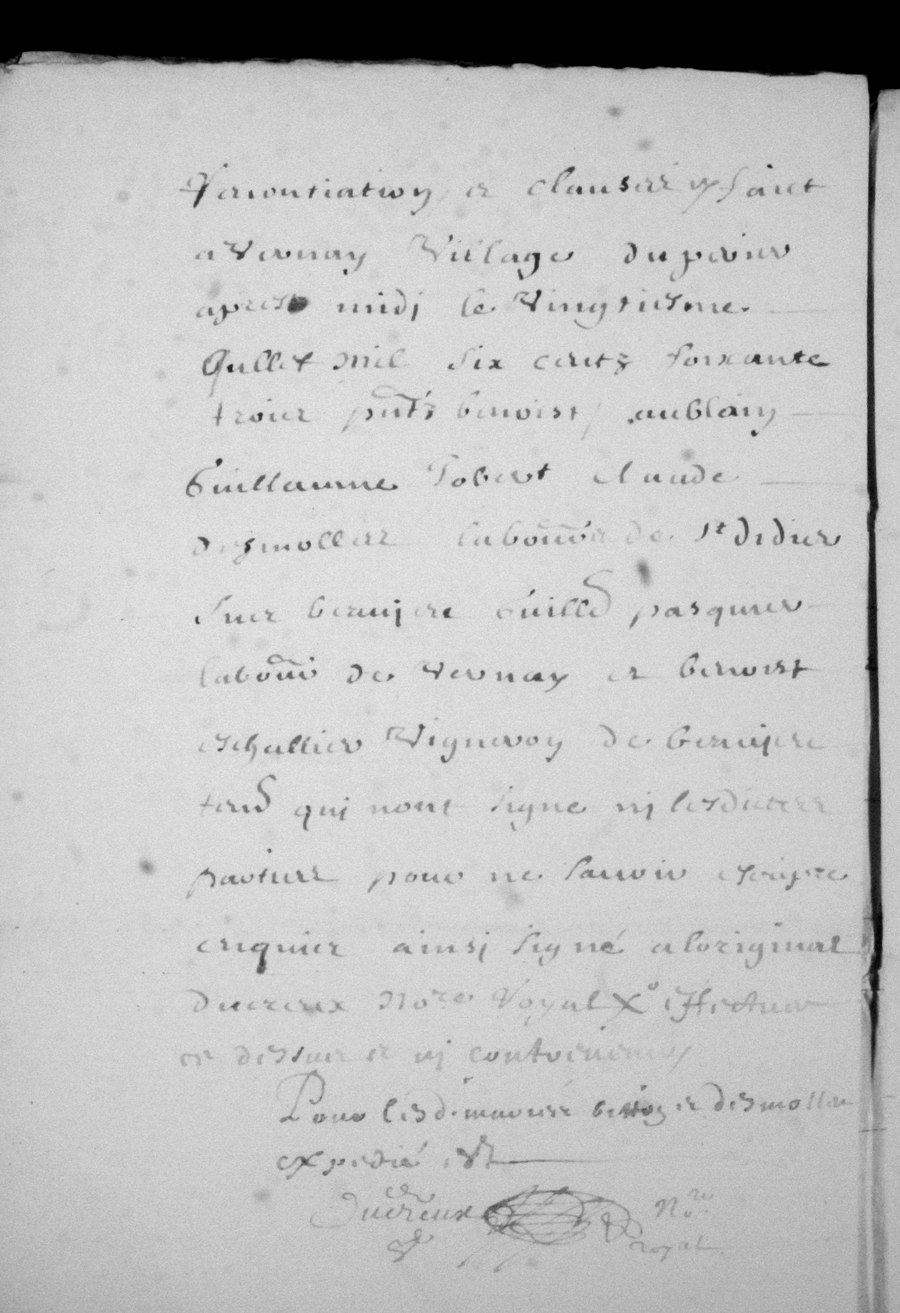 Renontiation et clauses Xo faict
a Vernay Village du perier
apres midj le Vingtiesme
Jullet mil six centz soixante
trois pntz benoist aublanj
Guillaume Robert claude
desmolles labour de St didier
Sur beaujeu Guille pasquier
labour de Vernay et benoist
eschallier Vigneron de beaujeu
qui nont signe nj lesdictes
parties pour ne scavoir escripre
enquis ainsj signé a loriginal
Ducreux Nore Royal Xo
ce dessus et nj contrevenir
Pour lesd. mariés et desmolles
expedié
Ducreux Nore
royal